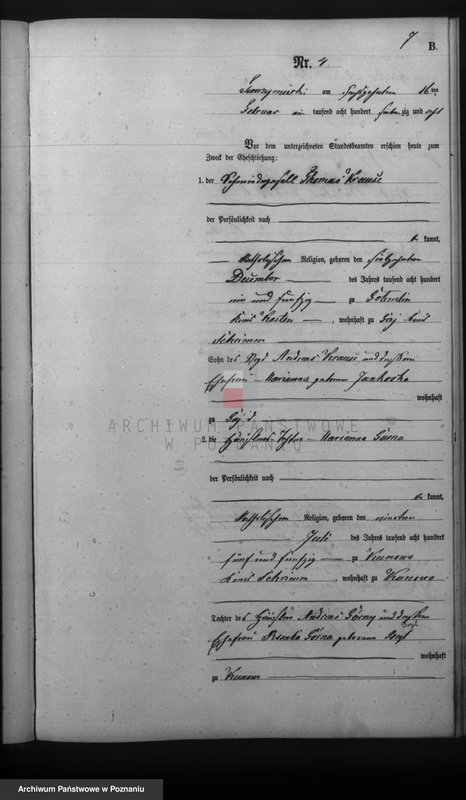 7 B.
Nr. 4
am sechszehnten 16ten
Februar ein tausend acht hundert siebenzig und acht
Vor dem unterzeichneten Standesbeamten erschien heute zum
Zweck der Eheschließung:
1. der Schmiedegesell Thomas Krause
der Persönlichkeit nach
be kannt,
katholischen Religion, geboren den
December des Jahres tausend acht hundert
ein und fünfzig zu
Kreis Kosten, wohnhaft zu Gaj Kreis
Schrimm
Sohn des Vogt Andreas Krause und dessen
Ehefrau Marianna geborene
wohnhaft
zu Gaj
2. die Häuslers Tochter Marianna Górna
der Persönlichkeit nach
be kannt,
katholischen Religion, geboren den vierten
Juli des Jahres tausend acht hundert
fünf und fünfzig zu Kunowo
Kreis Schrimm, wohnhaft zu Kunowo
Tochter des Häusler Andreas Górny und dessen
Ehefrau Rosalia Górna geborene
wohnhaft
zu Kunowo
ARCHIWUM PAŃSTWOWE
W POZNANIU
Archiwum Państwowe w Poznaniu